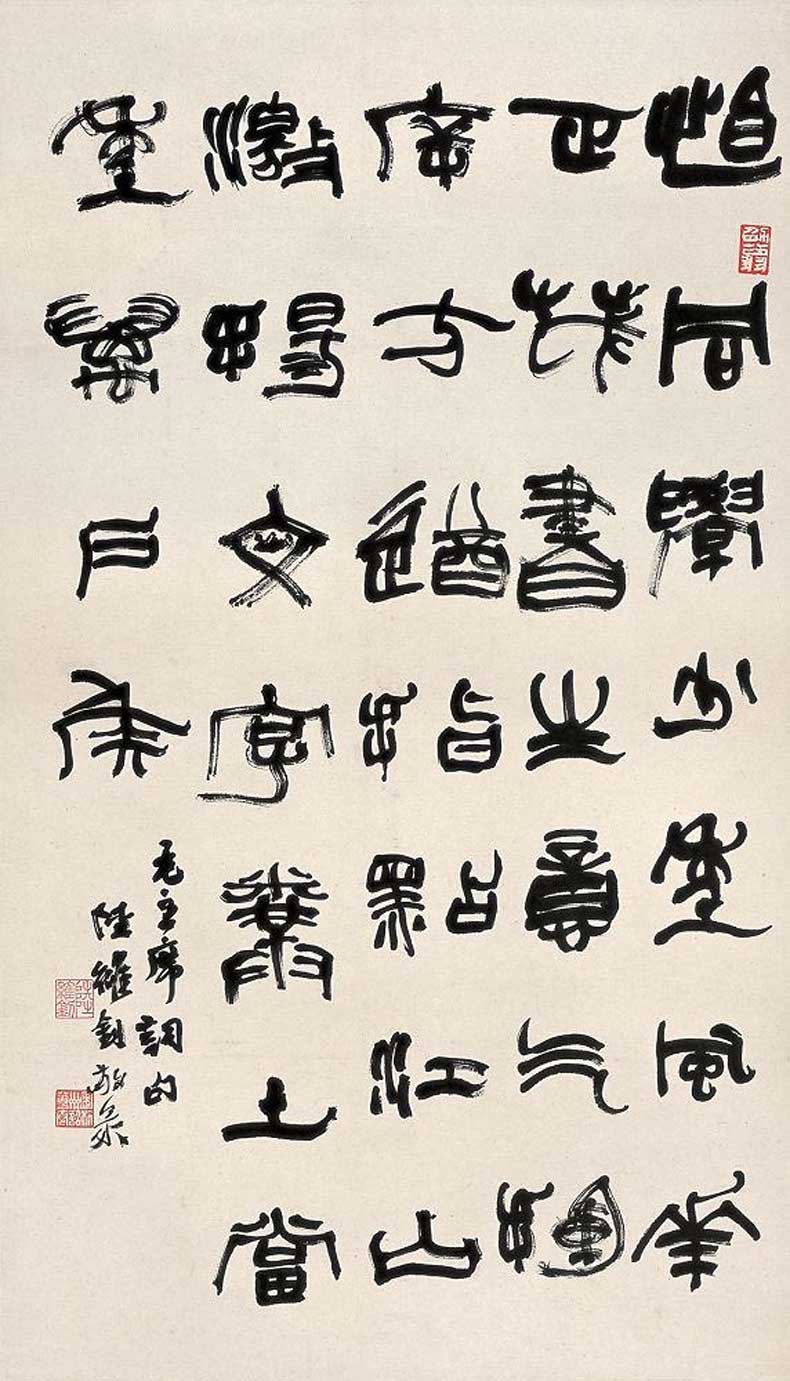 恰同學少年風華
正茂書生意气揮
斥方遒指點江山
激揚文字糞土當
年萬戶侯
毛主席詞句
陸維釗敬录